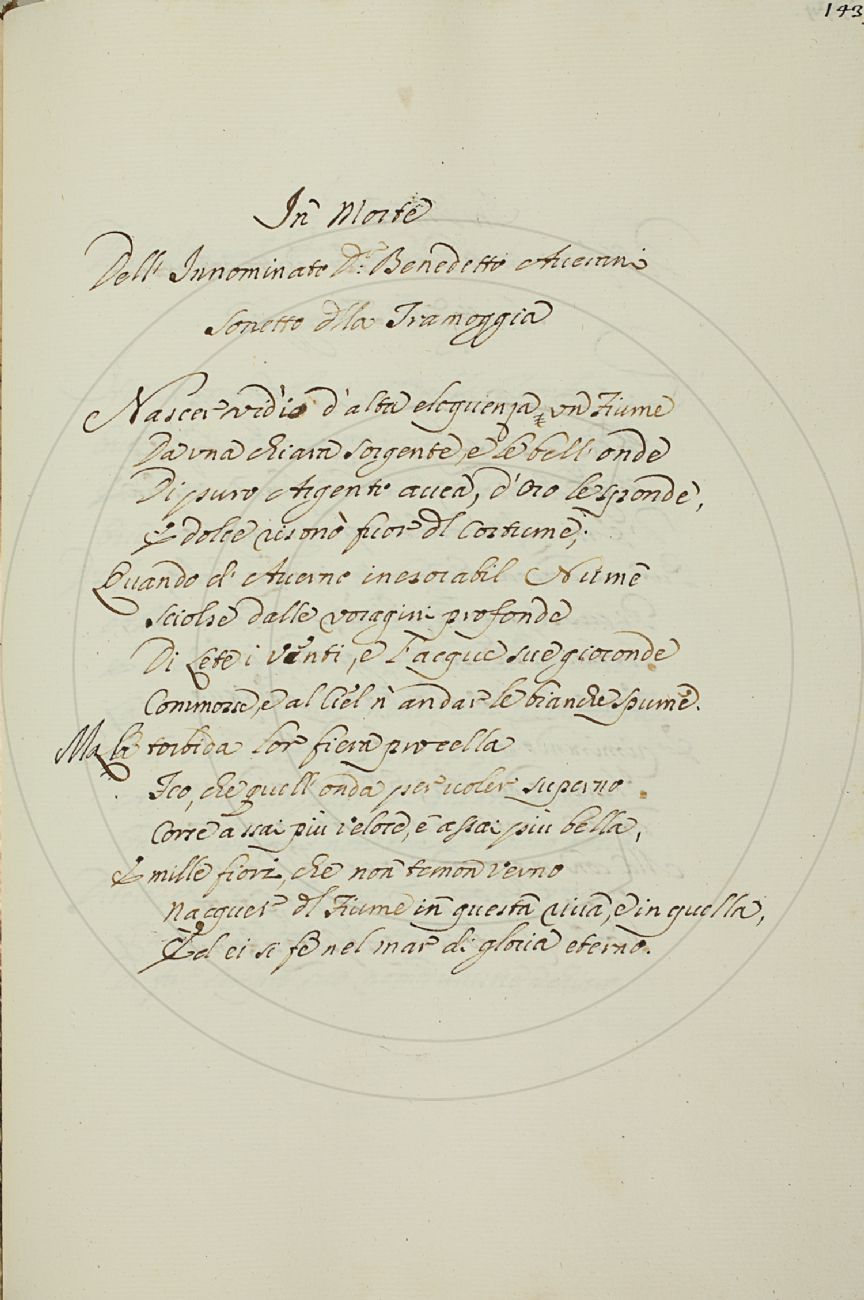 143
In Morte
Dell' Innominato Dr: Benedetto Averani
Sonetto dlla Tramoggia
Nascer vid'io d'alta eloquenza un Fiume
Da una chiara sorgente, e le bell' onde
Di puro Argento avea, d'Oro le sponde,
E dolce risonò fuor dl Costume;
Quando d' Averno inesorabil Nume
Sciolse dalle voragini profonde
Di Lete i Venti, e l'acque sue gioconde
Commosse, e al Ciel n' andar le bianche spume.
Ma la torbida lor fiera procella
Feo, che quell' onda per voler superno
Corre assai più veloce, e assai più bella,
E mille fiori, che non temon verno
Nacquer dl Fiume in questa riva, e in quella,
Ed ei si fe nel mar di gloria eterno.